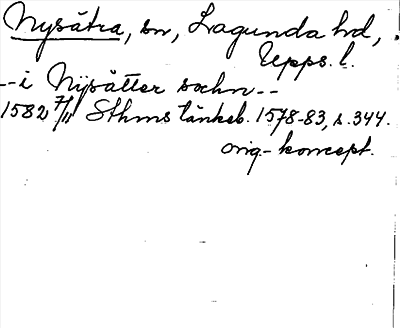 Nysätra, sn, Lagunda hd,
Upps. l.
--i Nijsätter sochn--
1582 7/11 Sthms tänkeb. 1578-83, s. 344.
orig.- koncept.